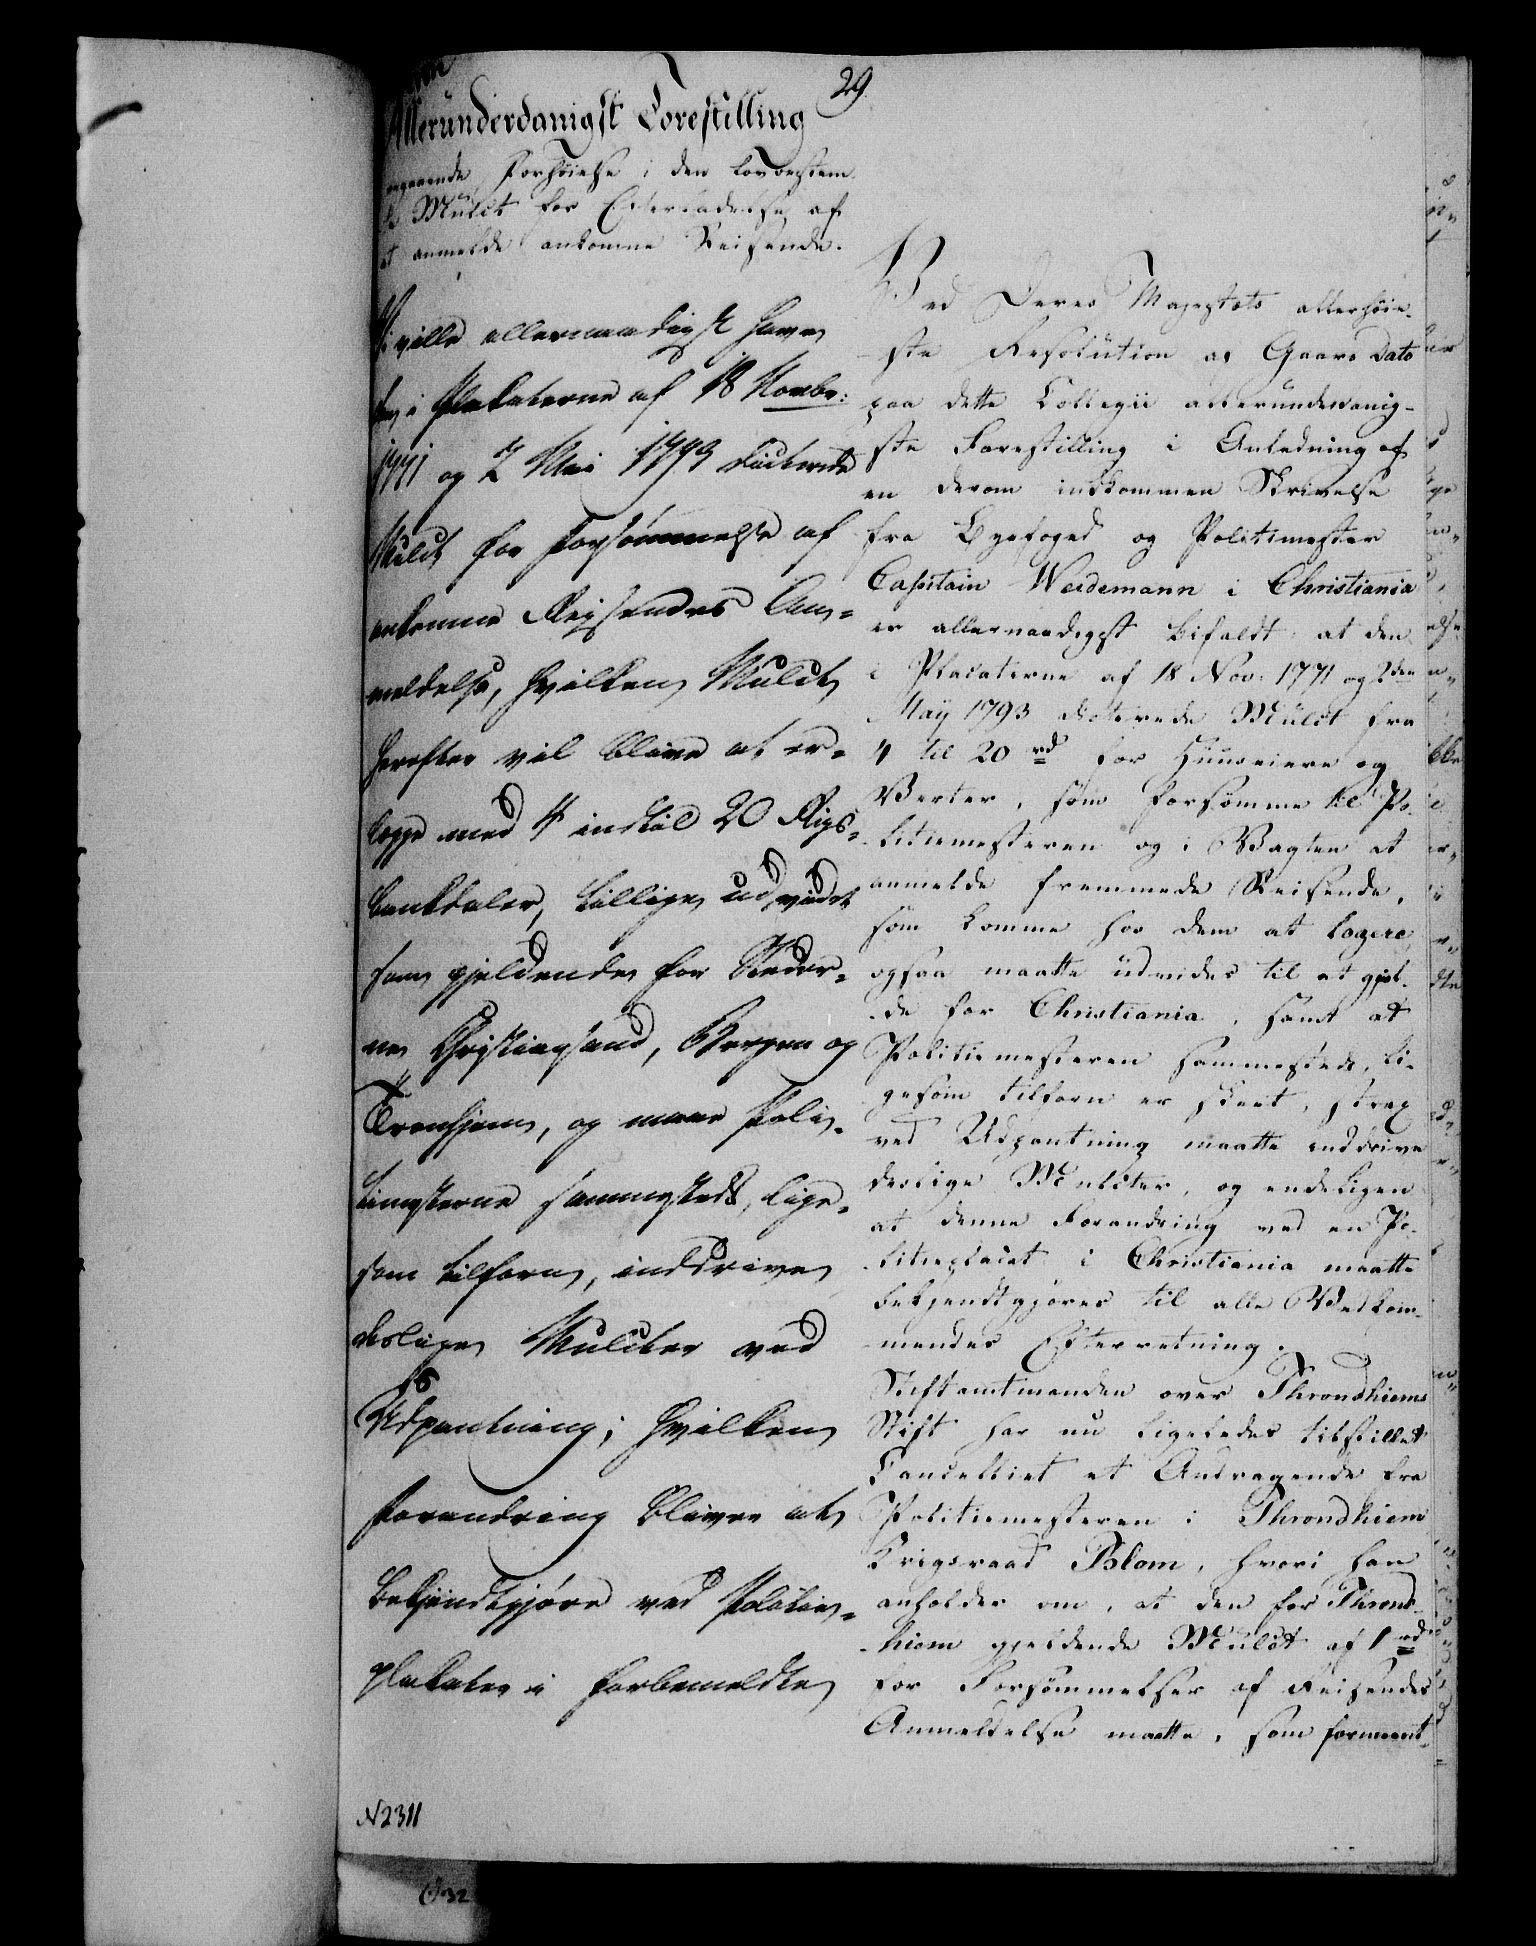 29.
Allerunderdanigst Forestilling
angaaende Forhöielse i den lovbestem
te Mulct for Efterladelse af
at anmelde ankomne Reisende.
Vi ville allernaadigst have
den i Plakaterne af 18 Novbr:
1771 og 2 Mai 1793 dicterede
Mulct for Forsömmelse af
ankomne Reisendes An=
meldelse, hvilken Mulct
herefter vil blive at er=
lægge med 4 indtil 20 Rigs=
bankdaler, tillige udvidet
som gjeldende for Stæder=
ne Christiansand, Bergen og
Tronhjem, og maae Poli=
timesterne sammesteds, lige=
som tilforn, inddrive
deslige Mulcter ved
Udpantning; hvilken
Forandring bliver at
bekjendtgjöre ved Politie=
plakater i forbemeldte
N 2311
Ved Deres Majestæts allerhöie-
ste Resolution af Gaars Dato
paa dette Collegii allerunderdanig-
ste Forestilling i Anledning af
en derom indkommen Skrivelse
fra Byefoged og Politimester
Capitain Weidemann i Christiania
er allernaadigst bifaldt, at den
i Placaterne af 18 Nov: 1771 og 2den
May 1793 dicterede Mulct fra
4 til 20 rd for Huuseiere og
Verter, som forsömme til Po-
litiemesteren og i Vagten at
anmelde fremmede Reisende,
som komme hos dem at logere
ogsaa maatte udvides til at gjel-
de for Christiania, samt at
Politiemesteren sammesteds, li-
gesom tilforn er skeet, strax
ved Udpantning maatte inddrive
deslige Mulcter, og endeligen
at denne Forandring ved en Po-
litieplacat i Christiania maatte
bekjendtgjöres til alle Vedkom-
mendes Efterretning.
Stiftamtmanden over Throndhiems
Stift har nu ligeledes tilstillet
Cancelliet et Andragende fra
Politiemesteren i Throndhiem
Krigsraad Blom, hvori han
anholder om, at den for Thrond-
hiem gjeldende Mulct af 1 rd
for Forsömmelser af Reisendes
Anmeldelse maatte, som formeent-